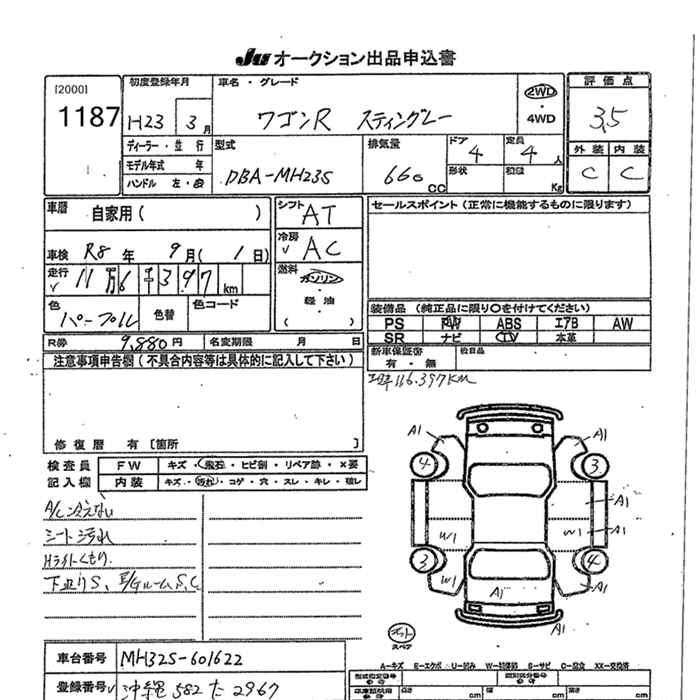 JU オークション出品申込書
[2000]
1187
初度登録年月
H23 3月
車名・グレード
ワゴンR スティングレー
2WD
・
4WD
評価点
3.5
外装 内装
C C
ディーラー・並行
モデル年式 年
ハンドル 左・右
型式
DBA-MH23S
排気量
660 CC
ドア
4
定員
4 人
形状
積
Kg
車歴
自家用( )
シフト
AT
セールスポイント(正常に機能するものに限ります)
車検 R8 年 9月( 1日)
冷房
AC
走行
11万6千397 km
燃料
ガソリン
・
軽油
( )
色
パープル
色替
色コード
装備品(純正品に限り○を付けてください)
PS PW ABS エアB AW
SR ナビ TV 本革
R券 9,880円
名変期限 月 日
新車保証書
有・無
後日品
注意事項申告欄(不具合内容等は具体的に記入して下さい)
116.397KM
修復歴 有[箇所 ]
検査員
記入欄
FW キズ・飛石・ヒビ割・リペア跡・×要
内装 キズ・汚れ・コゲ・穴・スレ・キレ・破レ
A/C冷えない
シート汚れ
Hライトくもり
下廻りS、E/GルームS,C
A1 A1
4 3
A1
W1 W1 A1
3 4
W1 A1 A1
A1
スペア
車台番号 MH23S-601622
登録番号 沖縄 582 た 2967
A-キズ E-エクボ U-凹み W-補修跡 S-サビ C-腐食 XX-交換済
型式指定番号
類別区分番号
高さ cm
cm
cm